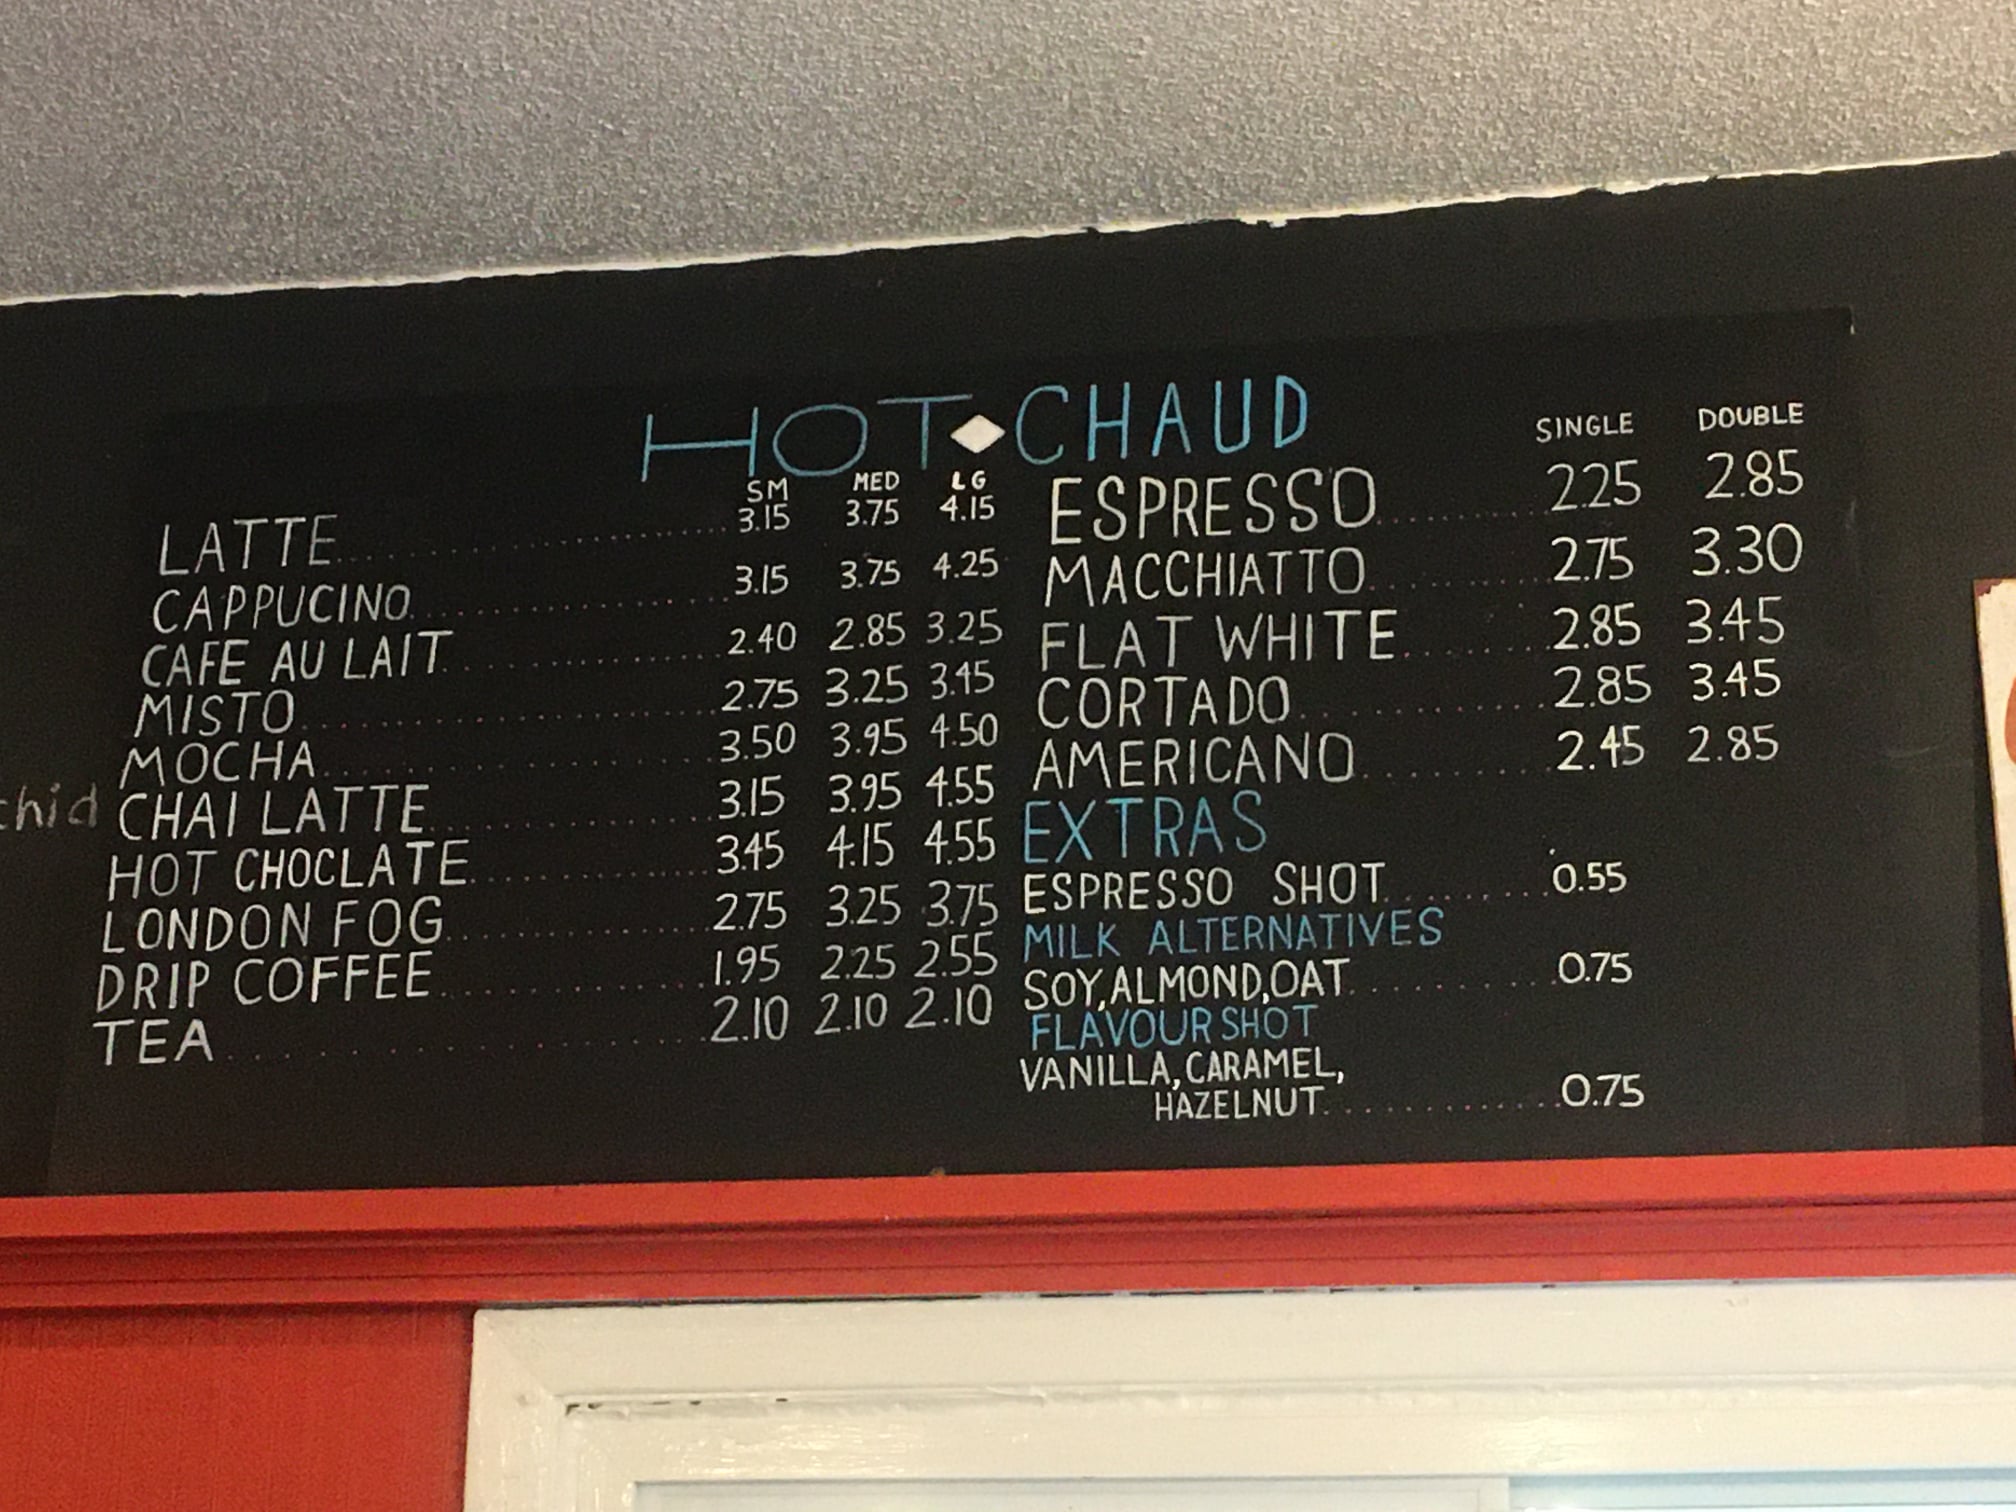 HOT CHAUD
SM MED LG
LATTE 3.15 3.75 4.15
CAPPUCINO 3.15 3.75 4.25
CAFE AU LAIT 2.40 2.85 3.25
MISTO 2.75 3.25 3.45
MOCHA 3.50 3.95 4.50
CHAI LATTE 3.15 3.95 4.55
HOT CHOCLATE 3.45 4.15 4.55
LONDON FOG 2.75 3.25 3.75
DRIP COFFEE 1.95 2.25 2.55
TEA 2.10 2.10 2.10
SINGLE DOUBLE
ESPRESSO 2.25 2.85
MACCHIATTO 2.75 3.30
FLAT WHITE 2.85 3.45
CORTADO 2.85 3.45
AMERICANO 2.45 2.85
EXTRAS
ESPRESSO SHOT 0.55
MILK ALTERNATIVES
SOY, ALMOND, OAT 0.75
FLAVOUR SHOT
VANILLA, CARAMEL,
HAZELNUT 0.75